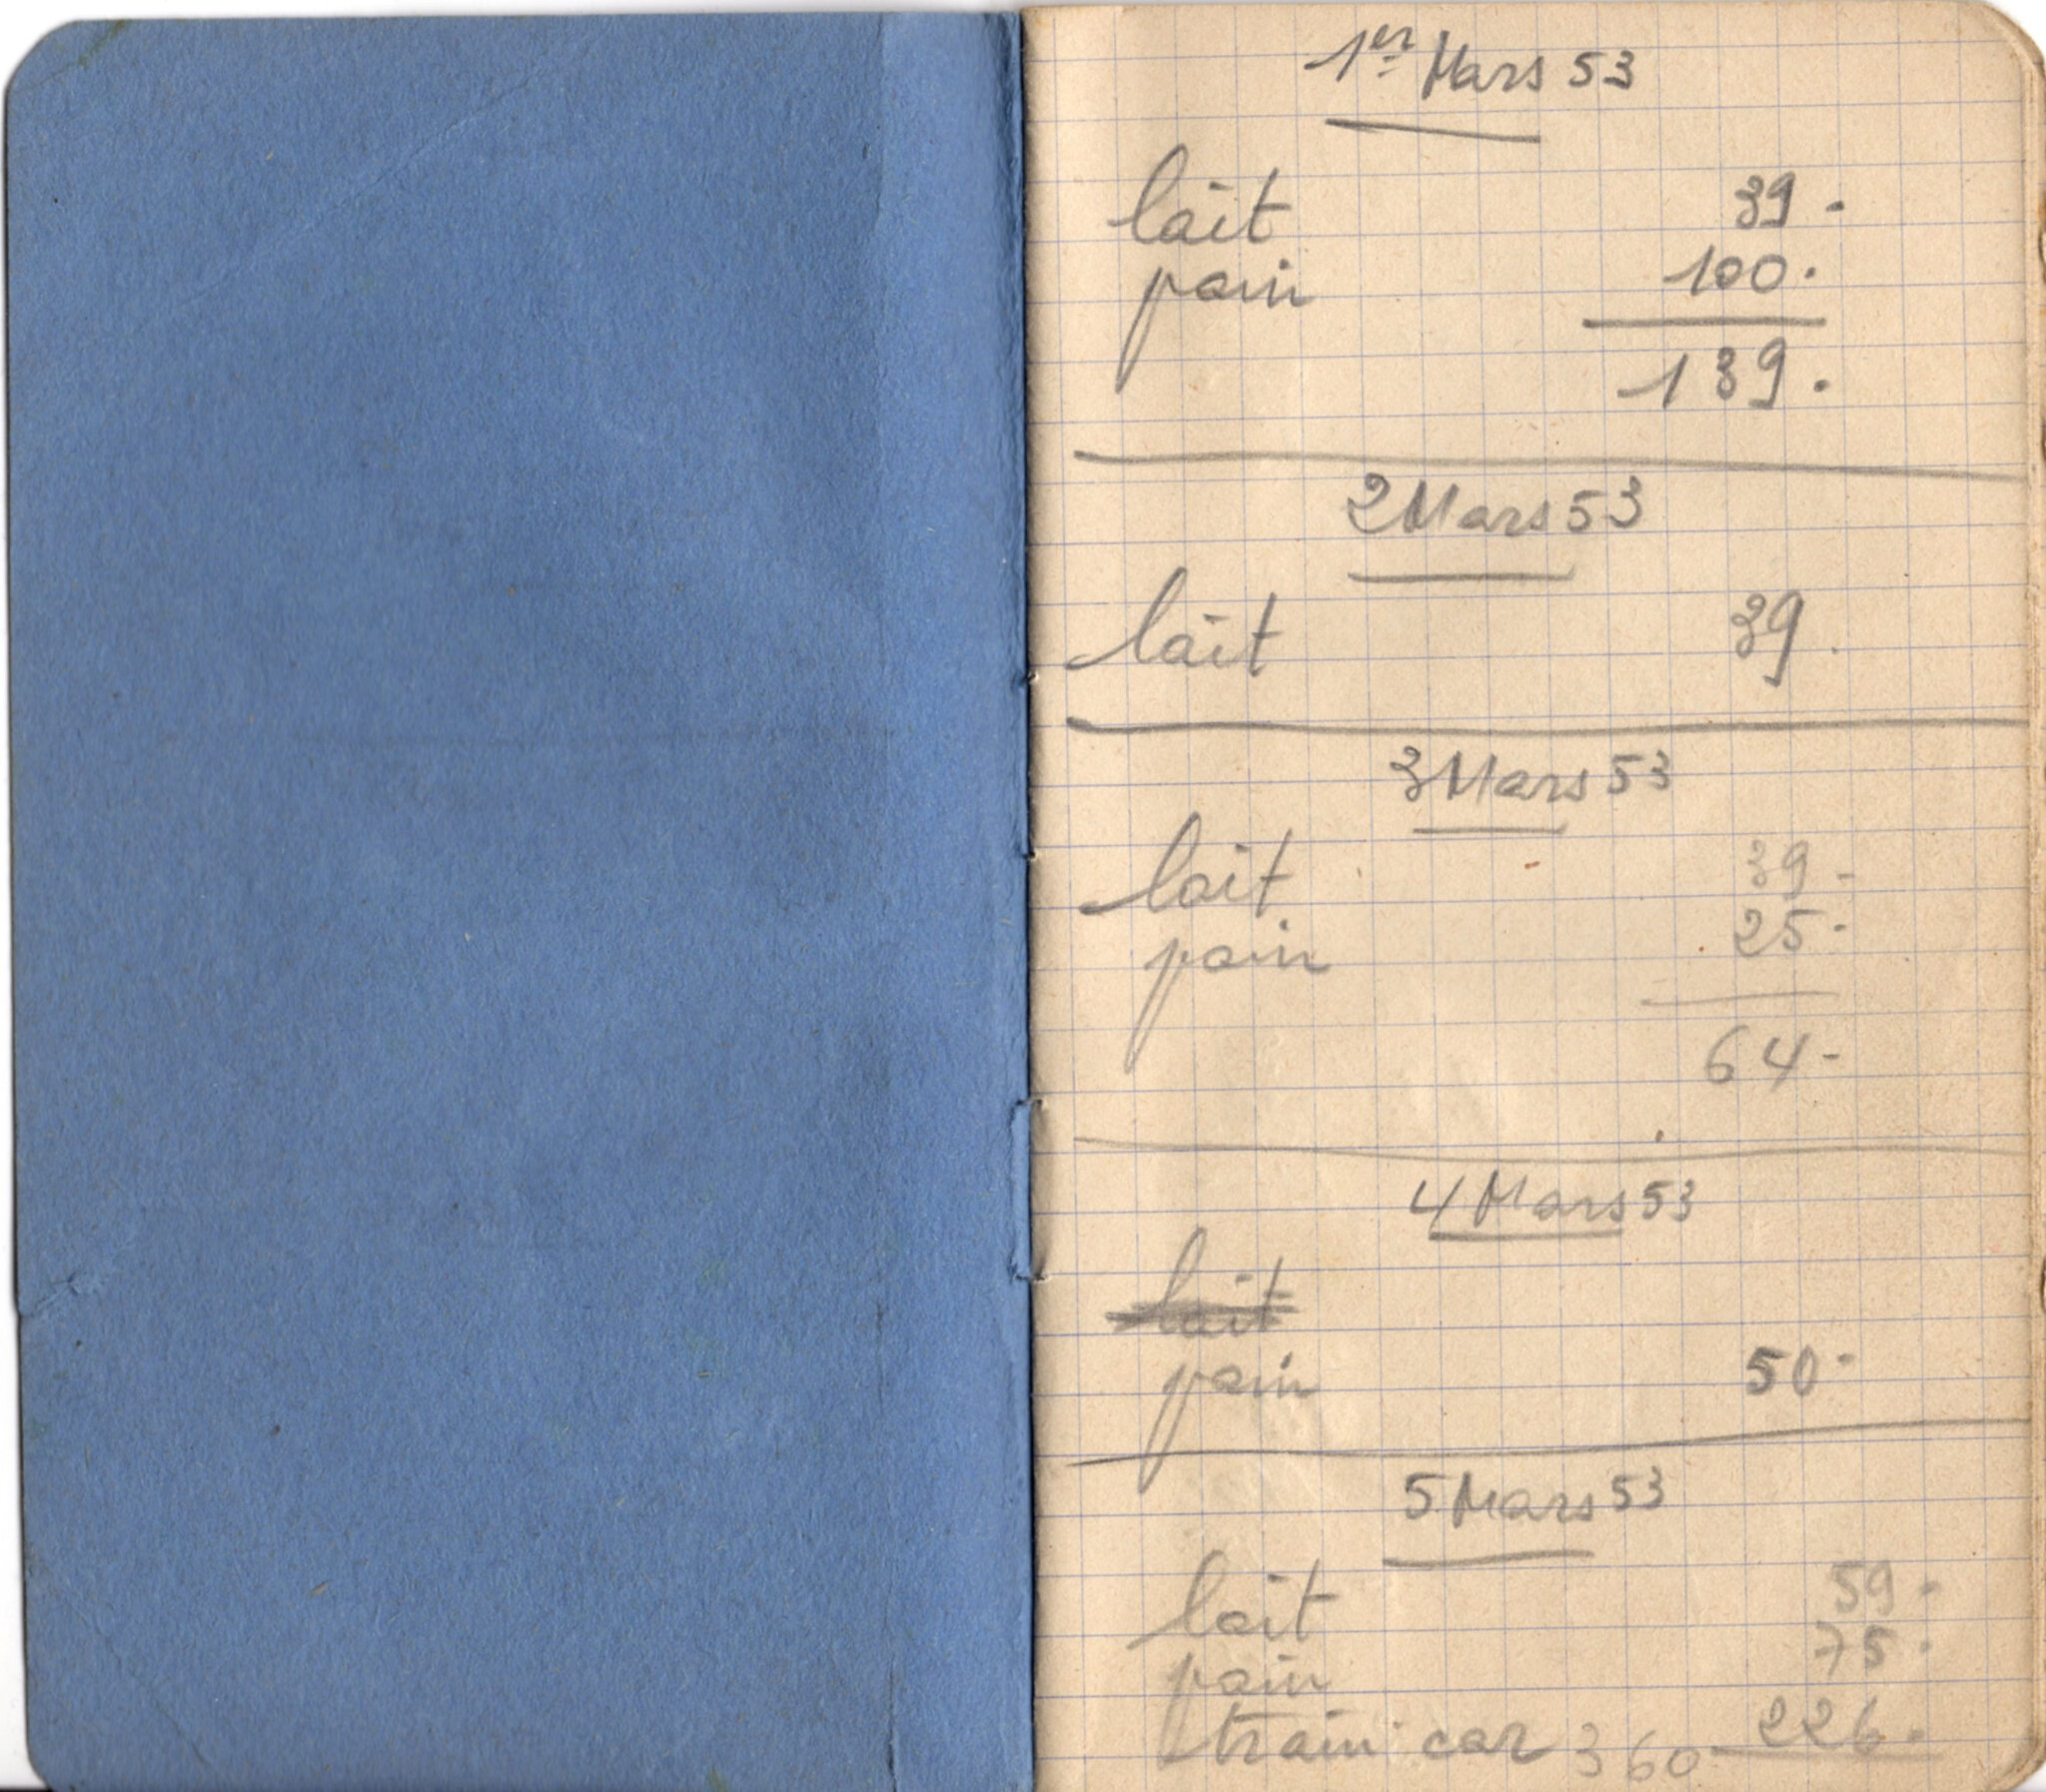 1er Mars 53
lait 39.
pain 100.
139.
2 Mars 53
lait 39.
3 Mars 53
lait 39-
pain 25.
64-
4 Mars 53
lait
pain 50-
5 Mars 53
lait 59.
pain 75.
train car 360 226.